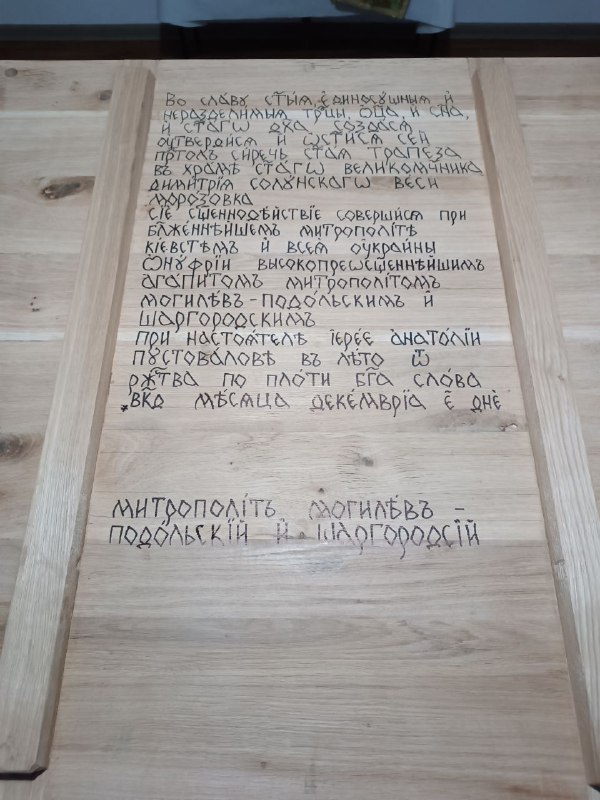 Во сла́ву ст҃ы́ѧ є҆диносу́щныѧ и҆
нераздели́мыѧ трⷪ҇цы, ѻ҆ц҃а, и҆ сн҃а,
и҆ ст҃а́гѡ дх҃а создасѧ
ᲂу҆твердисѧ и҆ ѡ҆ст҃исѧ сей
прⷭ҇толъ си́речь ст҃а́ѧ трапеза
въ хра́мѣ ст҃а́гѡ великомч҃ника
дими́трїѧ солу́нскагѡ веси
морозовка
сїѐ сщ҃еннодѣ́йствїе соверши́сѧ при
бл҃же́ннѣйшемъ митрополі́тѣ
кі́евстѣмъ и҆ всеѧ̀ ᲂу҆краи́ны
ѻ҆ну́фрїи высокопреѡсщ҃е́ннѣйшимъ
агапи́томъ митрополі́томъ
могиле́въ-подо́льскимъ и҆
шаргородскимъ
при настоѧ́телѣ і҆ере́е а҆нато́лїи
пꙋстова́ловѣ въ лѣ́то ѿ
рж҃тва̀ по пло́ти бг҃а сло́ва
҂вк҃д мѣ́сѧца деке́мврїа є҃ днѐ
митрополі́тъ могиле́въ -
подо́льскїй и҆ шаргородсїй